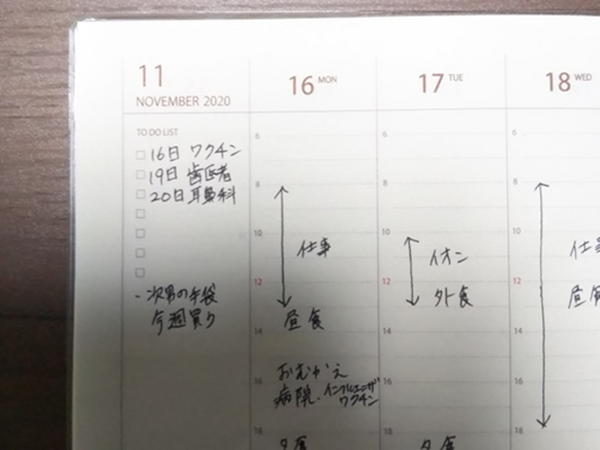 11
NOVEMBER 2020
TO DO LIST
16日 ワクチン
19日 歯医者
20日 耳鼻科
・次男の手袋
今週買う
16 MON
6
8
10
仕事
12
14
昼食
おむかえ
16
病院・インフルエンザ
ワクチン
18
夕食
17 TUE
6
8
10
イオン
12
外食
14
16
18
夕食
18 WED
6
8
10
仕事
12
昼食
14
16
18